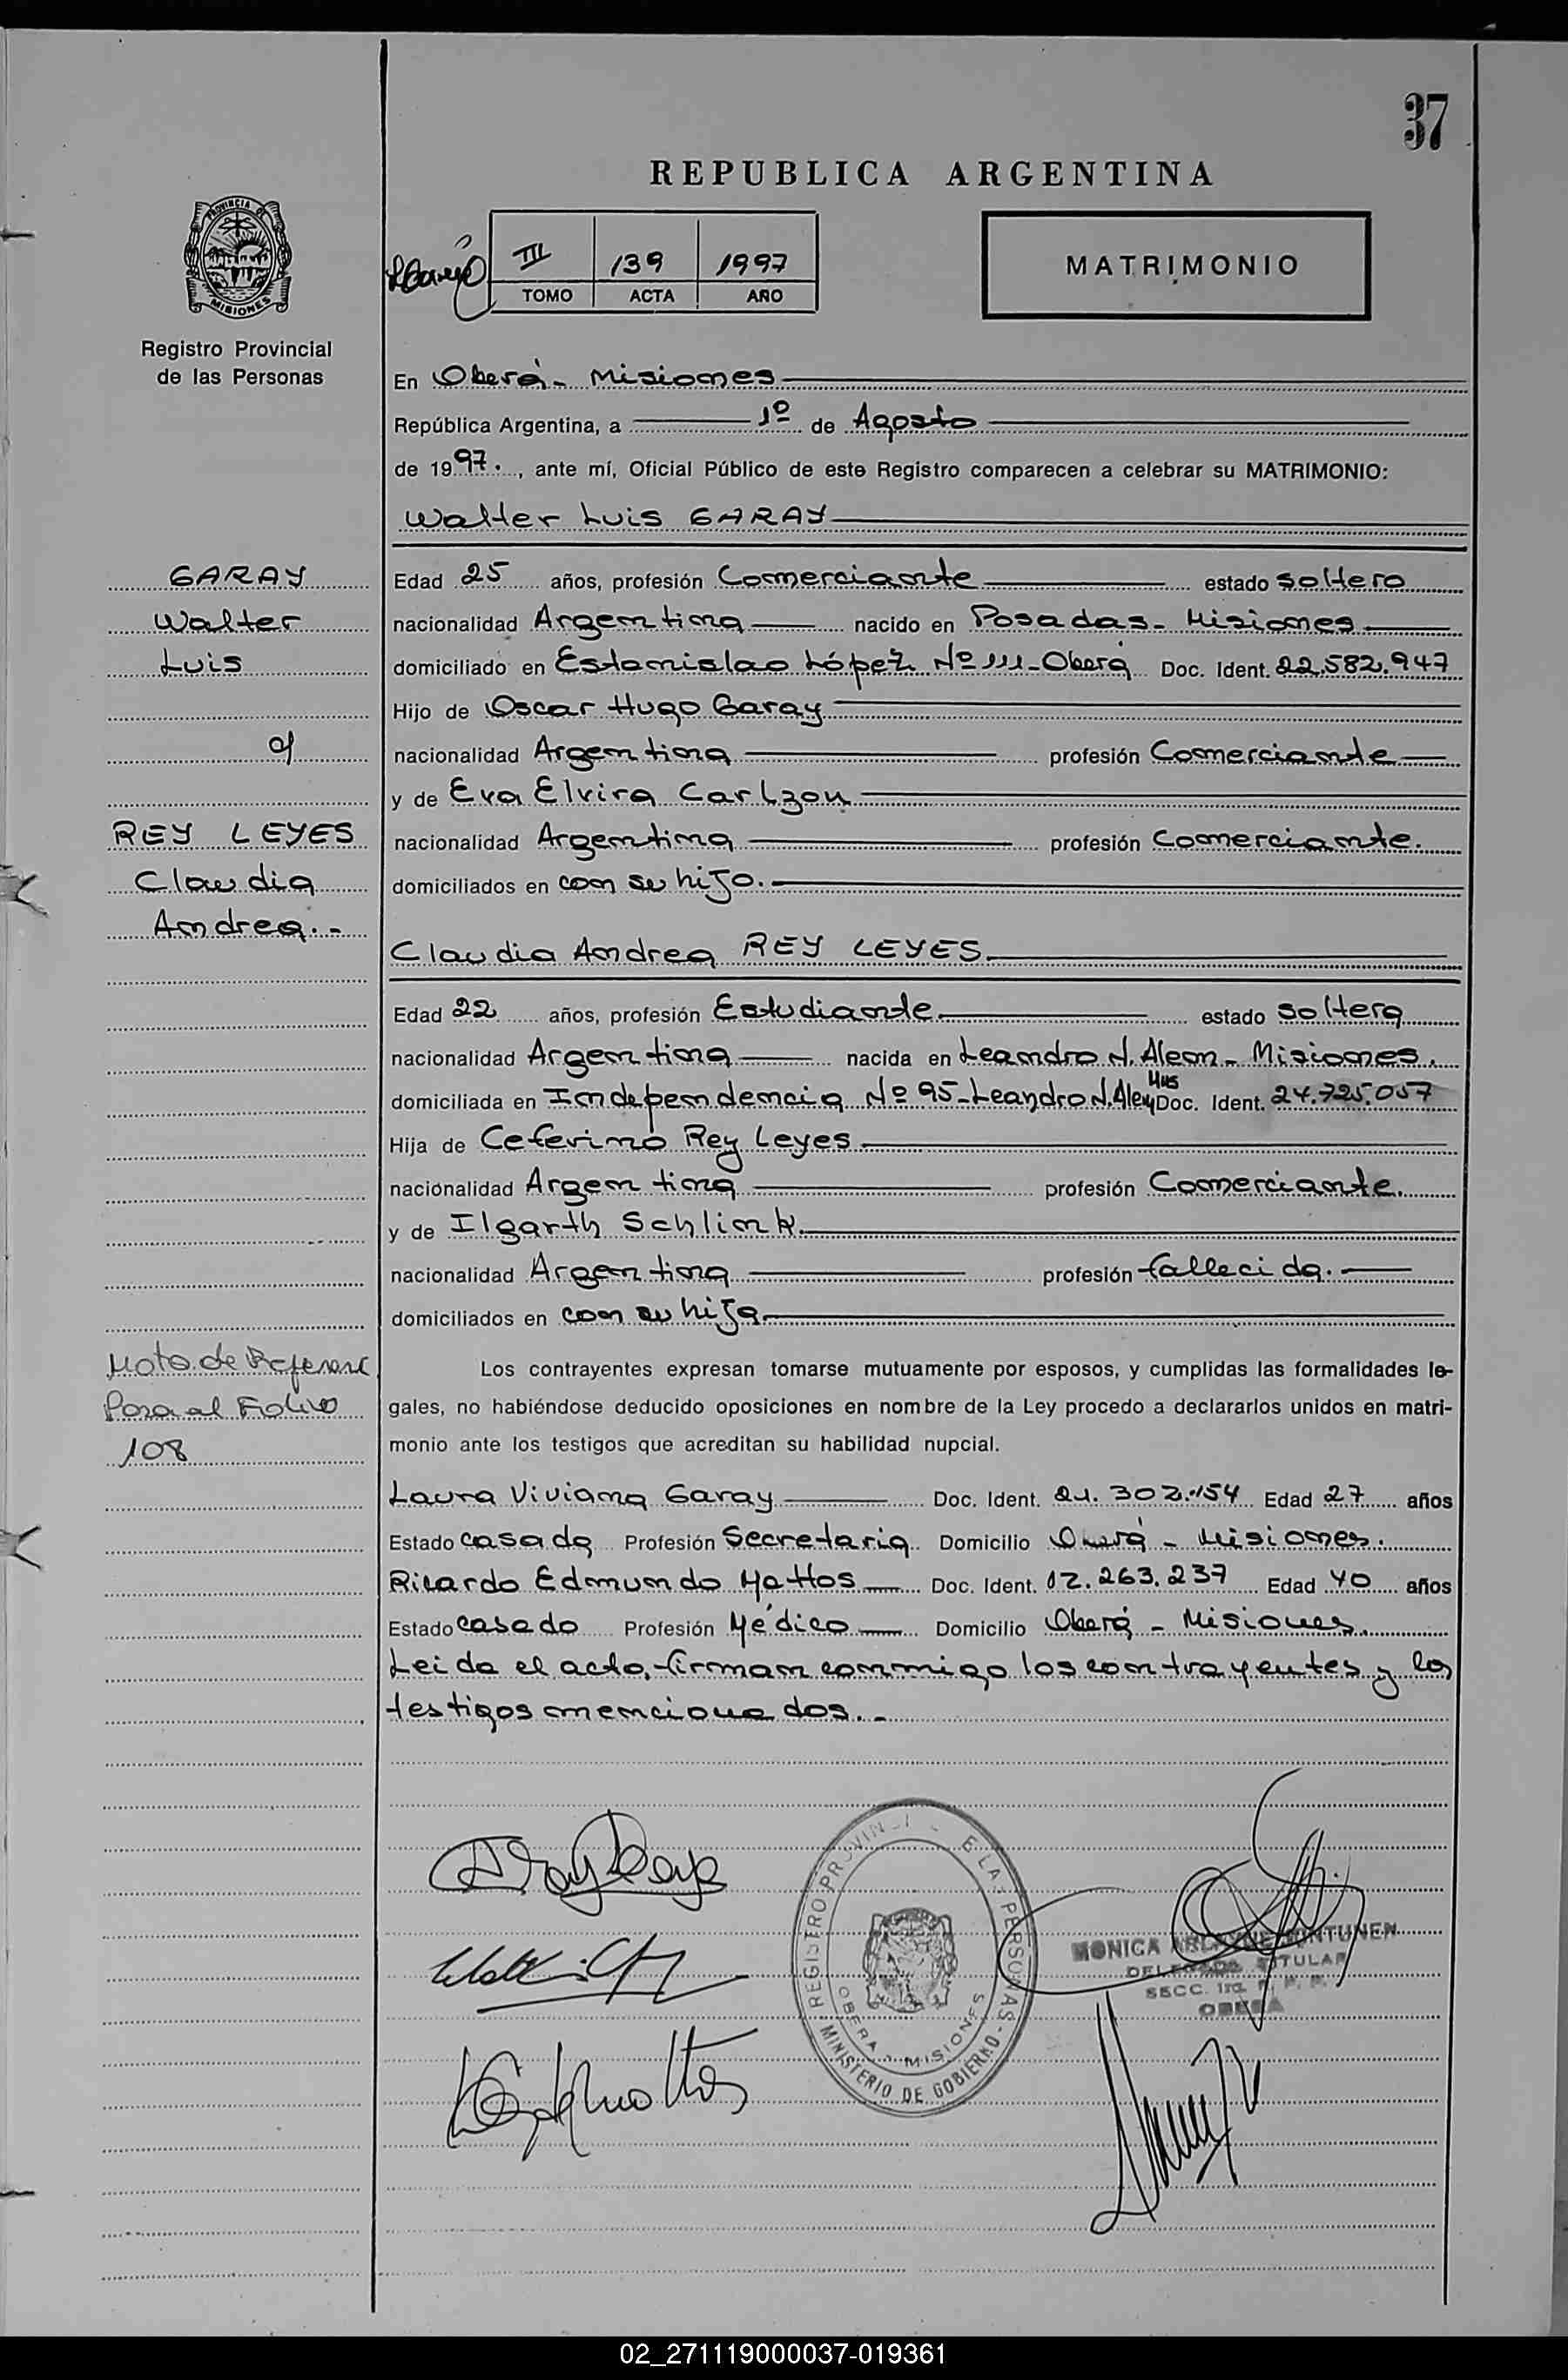 37
REPUBLICA ARGENTINA
III 139 1997
TOMO ACTA AÑO
MATRIMONIO
PROVINCIA DE MISIONES
Registro Provincial
de las Personas
En Oberá - Misiones
República Argentina, a 1º de Agosto
de 1997., ante mí, Oficial Público de este Registro comparecen a celebrar su MATRIMONIO:
Walter Luis GARAY
GARAY
Walter
Luis
c/
REY LEYES
Claudia
Andrea.-
Edad 25 años, profesión Comerciante estado soltero
nacionalidad Argentina nacido en Posadas - Misiones
domiciliado en Estanislao López Nº 111 - Oberá Doc. Ident. 22.582.947
Hijo de Oscar Hugo Garay
nacionalidad Argentina profesión Comerciante
y de Eva Elvira Carlzon
nacionalidad Argentina profesión Comerciante.
domiciliados en con su hijo.
Claudia Andrea REY LEYES
Edad 22 años, profesión Estudiante estado soltera
nacionalidad Argentina nacida en Leandro N. Alem - Misiones.
domiciliada en Independencia Nº 95 - Leandro N. Alem Mns Doc. Ident. 24.725.057
Hija de Ceferino Rey Leyes
nacionalidad Argentina profesión Comerciante.
y de Ilgarth Schlink
nacionalidad Argentina profesión fallecida.
domiciliados en con su hija
Nota de Referenc
Pasa al Folio
108
Los contrayentes expresan tomarse mutuamente por esposos, y cumplidas las formalidades le-
gales, no habiéndose deducido oposiciones en nombre de la Ley procedo a declararlos unidos en matri-
monio ante los testigos que acreditan su habilidad nupcial.
Laura Viviana Garay Doc. Ident. 21.302.154 Edad 27 años
Estado casada Profesión Secretaria Domicilio Oberá - Misiones.
Ricardo Edmundo Mattos Doc. Ident. 12.263.237 Edad 40 años
Estado casado Profesión Médico Domicilio Oberá - Misiones.
Leida el acto, firman conmigo los contrayentes y los
testigos mencionados.-
REGISTRO PROVINCI E LAS PERSONAS -
MINISTERIO DE GOBIERNO -
OBERA - MISIONES
MONICA
DELEGADA TITULAR
SECC. 1ra. R. P. P.
OBERA
02_271119000037-019361